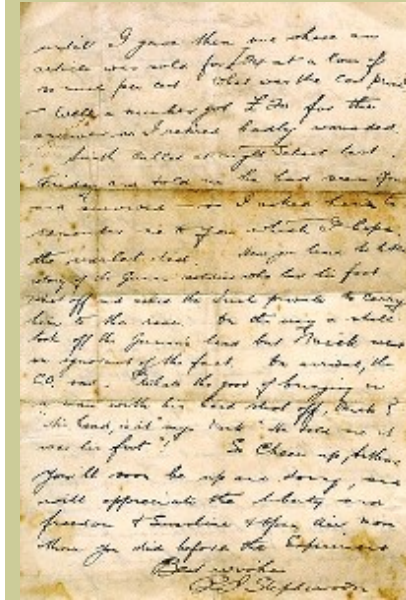 until I gave them one where an
article was sold for £20 at a loss of
so much per cent. What was the cost price
Well a number got £20 for the
answer so I retired badly wounded.
Smith called at night School last
Friday and told me he had seen you
and so I asked him to
remember me to you which I hope
the rascal did. Have you heard the
story of the German who had his foot
shot off and asked the Irish private to carry
him to the rear. On the way a shell
took off the German's head but Mick was
in ignorant of the fact. On arrival, the
C.O. said. What's the good of bringing in
a man with his head shot off, Mick?
"His head, is it" says Mick "He told me it
was his foot"! So Cheer up, Arthur
you'll soon be up and doing, and
will appreciate the liberty and
freedom & Sunshine & Open air more
than you did before the Experience
Best wishes